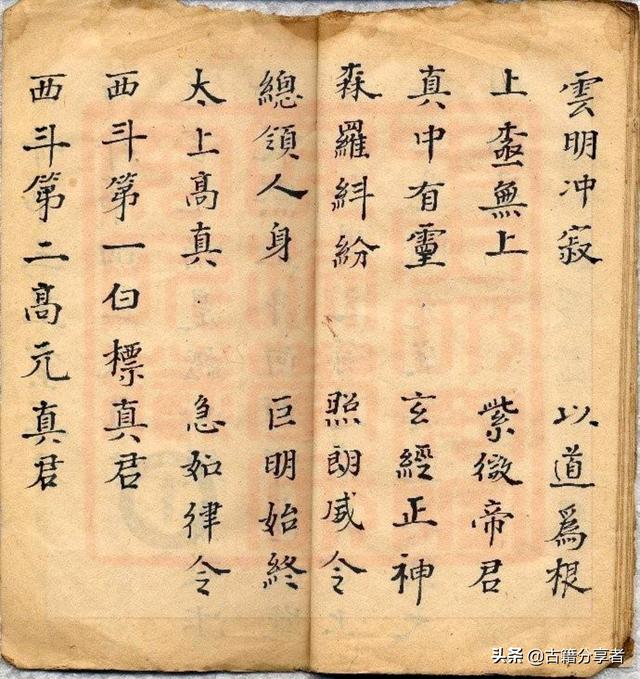 雲明冲寂 以道爲根
上無上 紫微帝君
真中有靈 玄經正神
森羅紏紛 照朗威令
總領人身 巨明始終
太上高真 急如律令
西斗第一白標真君
西斗第二高元真君
头条 @古籍分享者